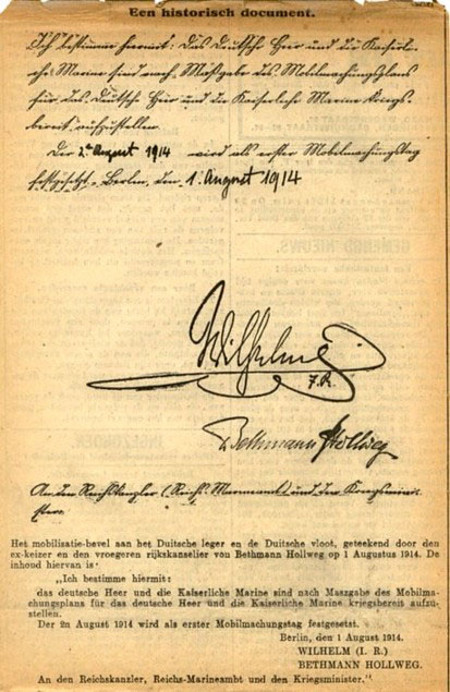 Een historisch document.
Ich bestimme hiermit: Das Deutsche Heer und die Kaiserli-
che Marine sind nach Maßgabe des Mobilmachungsplans
für das Deutsche Heer und die Kaiserliche Marine kriegs-
bereit aufzustellen.
Der 2te August 1914 wird als erster Mobilmachungstag
festgesetzt. Berlin, den 1. August 1914
Wilhelm
I.R.
Bethmann Hollweg
An den Reichskanzler (Reichs-Marineamt) und den Kriegsmini-
ster.
Het mobilisatie-bevel aan het Duitsche leger en de Duitsche vloot, geteekend door den
ex-keizer en den vroegeren rijkskanselier von Bethmann Hollweg op 1 Augustus 1914. De
inhoud hiervan is:
„Ich bestimme hiermit:
das deutsche Heer und die Kaiserliche Marine sind nach Maszgabe des Mobilma-
chungsplans für das deutsche Heer und die Kaiserliche Marine kriegsbereit aufzu-
stellen.
Der 2n August 1914 wird als erster Mobilmachungstag festgesetz.
Berlin, den 1 August 1914.
WILHELM (I. R.)
BETHMANN HOLLWEG.
An den Reichskanzler, Reichs-Marineambt und den Kriegsminister."